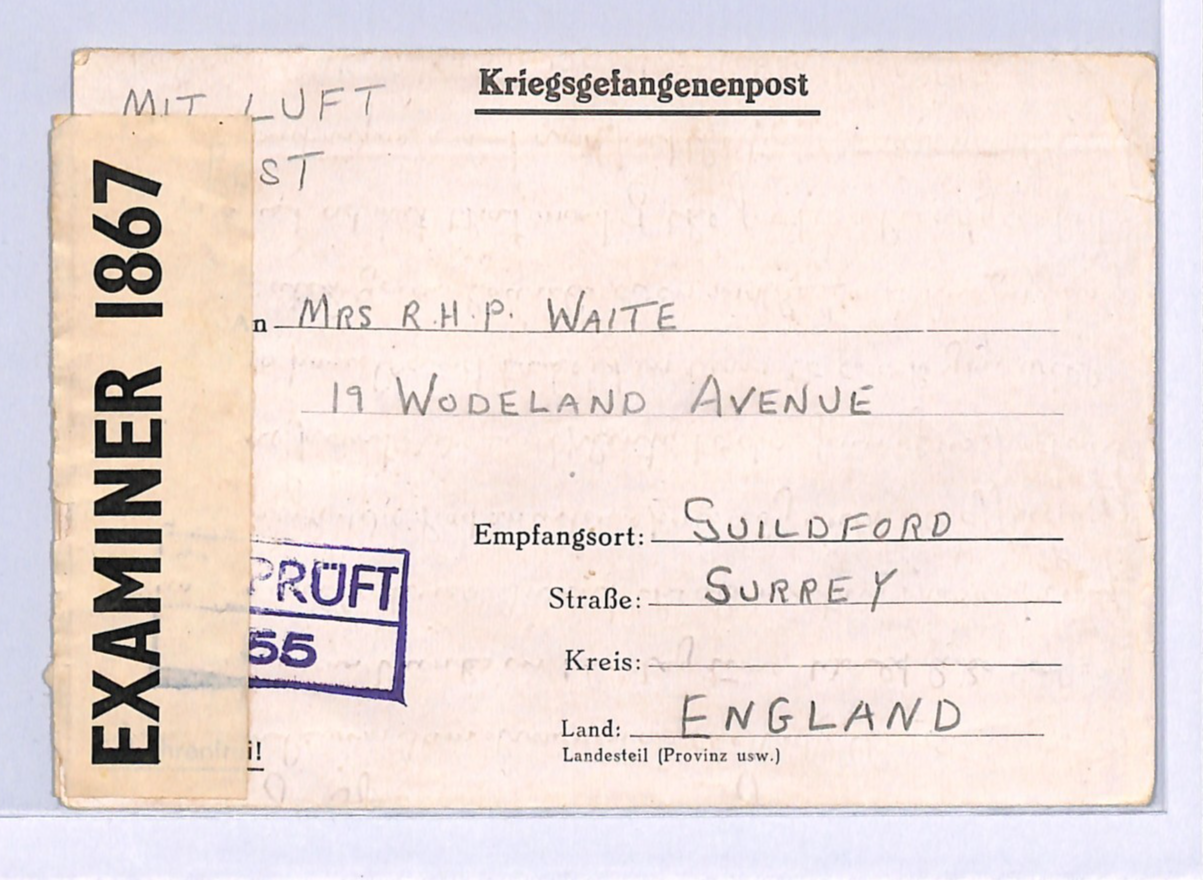 Kriegsgefangenenpost
MIT LUFT
ST
EXAMINER 1867
n MRS R.H.P. WAITE
19 WODELAND AVENUE
Empfangsort: GUILDFORD
Straße: SURREY
Kreis:
PRÜFT
55
Land: ENGLAND
Landesteil (Provinz usw.)
i!